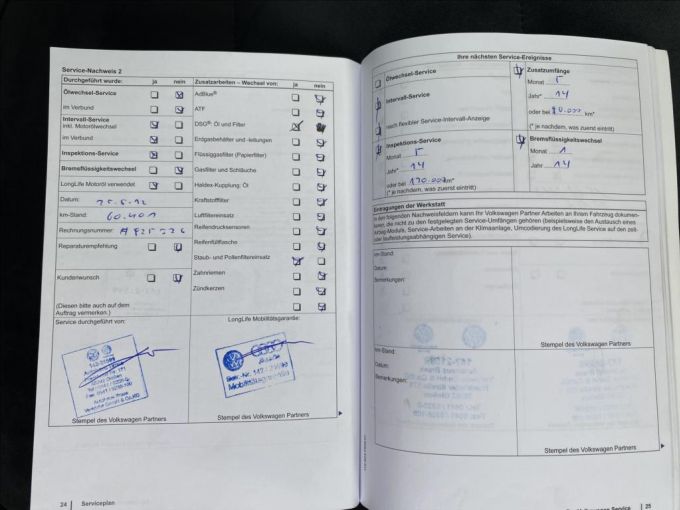 Service-Nachweis 2
Durchgeführt wurde: ja nein
Ölwechsel-Service
im Verbund
Intervall-Service
inkl. Motorölwechsel
im Verbund
Inspektions-Service
Bremsflüssigkeitswechsel
LongLife Motoröl verwendet
Datum:
km-Stand: 60.401
Rechnungsnummer:
Reparaturempfehlung
Kundenwunsch
(Diesen bitte auch auf dem
Auftrag vermerken.)
Service durchgeführt von:
Stempel des Volkswagen Partners
Zusatzarbeiten – Wechsel von: ja nein
AdBlue®
ATF
DSG®: Öl und Filter
Erdgasbehälter und -leitungen
Flüssiggasfilter (Papierfilter)
Gasfilter und Schläuche
Haldex-Kupplung: Öl
Kraftstofffilter
Luftfiltereinsatz
Reifendrucksensoren
Reifenfüllflasche
Staub- und Pollenfiltereinsatz
Zahnriemen
Zündkerzen
LongLife Mobilitätsgarantie:
Mobilitätsgarantie
Stempel des Volkswagen Partners
24 Serviceplan
Ihre nächsten Service-Ereignisse
Ölwechsel-Service
Intervall-Service
nach flexibler Service-Intervall-Anzeige
Inspektions-Service
Monat 5
Jahr* 14
oder bei km*
(* je nachdem, was zuerst eintritt)
Zusatzumfänge
Monat 5
Jahr* 14
oder bei km*
(* je nachdem, was zuerst eintritt)
Bremsflüssigkeitswechsel
Monat 1
Jahr 14
Eintragungen der Werkstatt
In den folgenden Nachweisfeldern kann Ihr Volkswagen Partner Arbeiten an Ihrem Fahrzeug dokumen-
tieren, die nicht zu den festgelegten Service-Umfängen gehören (beispielsweise den Austausch eines
Airbag-Moduls, Service-Arbeiten an der Klimaanlage, Umcodierung des LongLife Service auf den zeit-
oder laufleistungsabhängigen Service).
km-Stand:
Datum:
Bemerkungen:
Stempel des Volkswagen Partners
km-Stand:
Datum:
Bemerkungen:
Stempel des Volkswagen Partners
Volkswagen Service 25